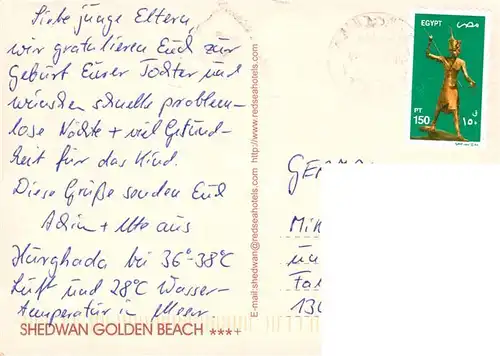 Liebe junge Eltern,
wir gratulieren Euch zur
Geburt Eurer Tochter und
wünschen schnelle problem-
lose Nächte + viel Gesund-
heit für das Kind.
Diese Grüße senden Euch
+ Uto aus
Hurghada bei 36°-38°C
Luft und 28°C Wasser-
temperatur im Meer.
SHEDWAN GOLDEN BEACH ****+
E-mail:shedwan@redseahotels.com http://www.redseahotels.com
EGYPT مصر
PT 150 ١٥٠ ق
GER
Mit
un
Fal
130